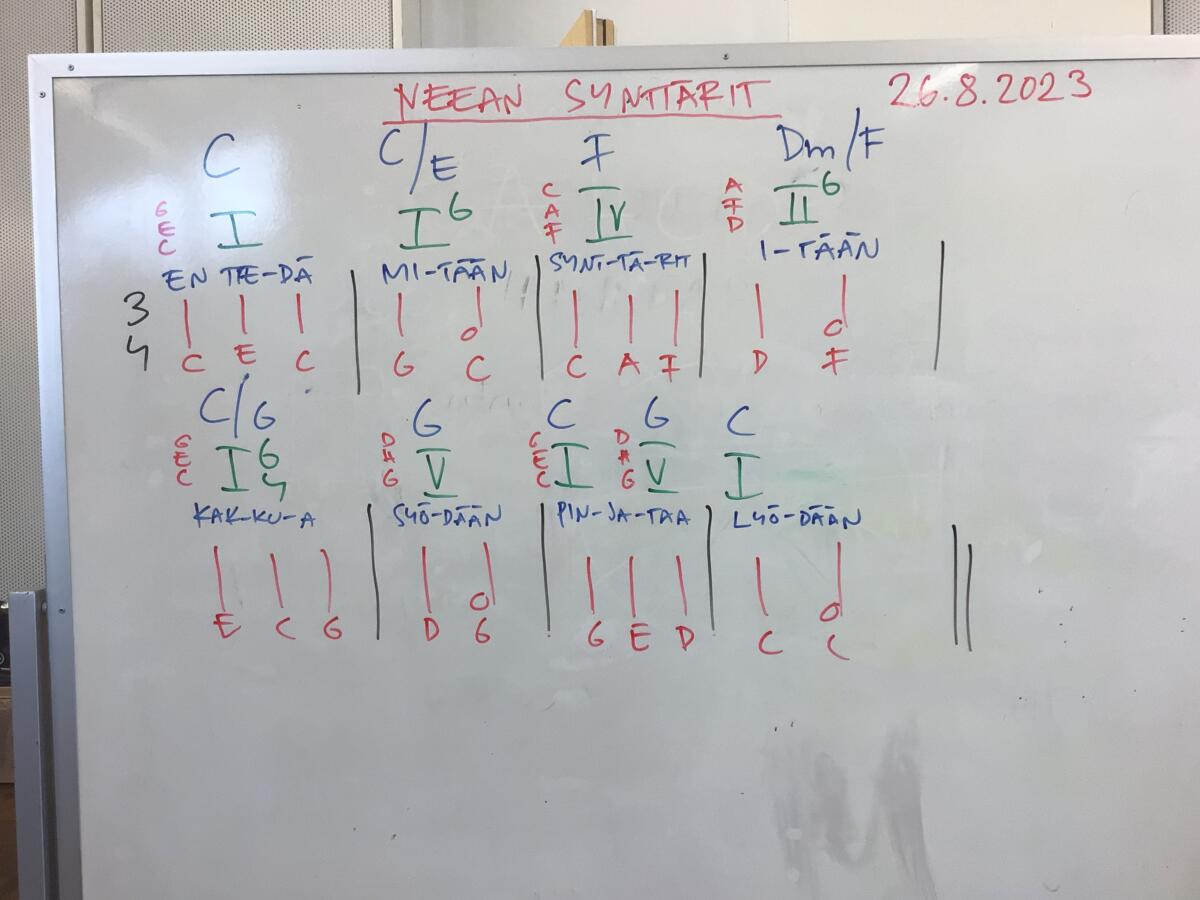 NEEAN SYNTTÄRIT 26.8.2023
C C/E F Dm/F
G E C I I6 C A F IV A F D II6
EN TIE-DÄ MI-TÄÄN SYNT-TÄ-RIT I-TÄÄN
3 4
C E C G C C A F D F
C/G G C G C
G E C I6 4 D H G V G E C I D H G V I
KAK-KU-A SYÖ-DÄÄN PIN-JA-TAA LYÖ-DÄÄN
E C G D G G E D C C